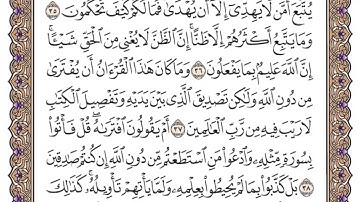 يُتَّبَعَ أَمَّن لَّا يَهِدِّىٓ إِلَّآ أَن يُهْدَىٰ فَمَا لَكُمْ كَيْفَ تَحْكُمُونَ ٣٥
وَمَا يَتَّبِعُ أَكْثَرُهُمْ إِلَّا ظَنًّا إِنَّ ٱلظَّنَّ لَا يُغْنِى مِنَ ٱلْحَقِّ شَيْـًٔا
إِنَّ ٱللَّهَ عَلِيمٌۢ بِمَا يَفْعَلُونَ ٣٦ وَمَا كَانَ هَٰذَا ٱلْقُرْءَانُ أَن يُفْتَرَىٰ
مِن دُونِ ٱللَّهِ وَلَٰكِن تَصْدِيقَ ٱلَّذِى بَيْنَ يَدَيْهِ وَتَفْصِيلَ ٱلْكِتَٰبِ
لَا رَيْبَ فِيهِ مِن رَّبِّ ٱلْعَٰلَمِينَ ٣٧ أَمْ يَقُولُونَ ٱفْتَرَىٰهُ قُلْ فَأْتُوا۟
بِسُورَةٍ مِّثْلِهِۦ وَٱدْعُوا۟ مَنِ ٱسْتَطَعْتُم مِّن دُونِ ٱللَّهِ إِن كُنتُمْ صَٰدِقِينَ
٣٨ بَلْ كَذَّبُوا۟ بِمَا لَمْ يُحِيطُوا۟ بِعِلْمِهِۦ وَلَمَّا يَأْتِهِمْ تَأْوِيلُهُۥ كَذَٰلِكَ